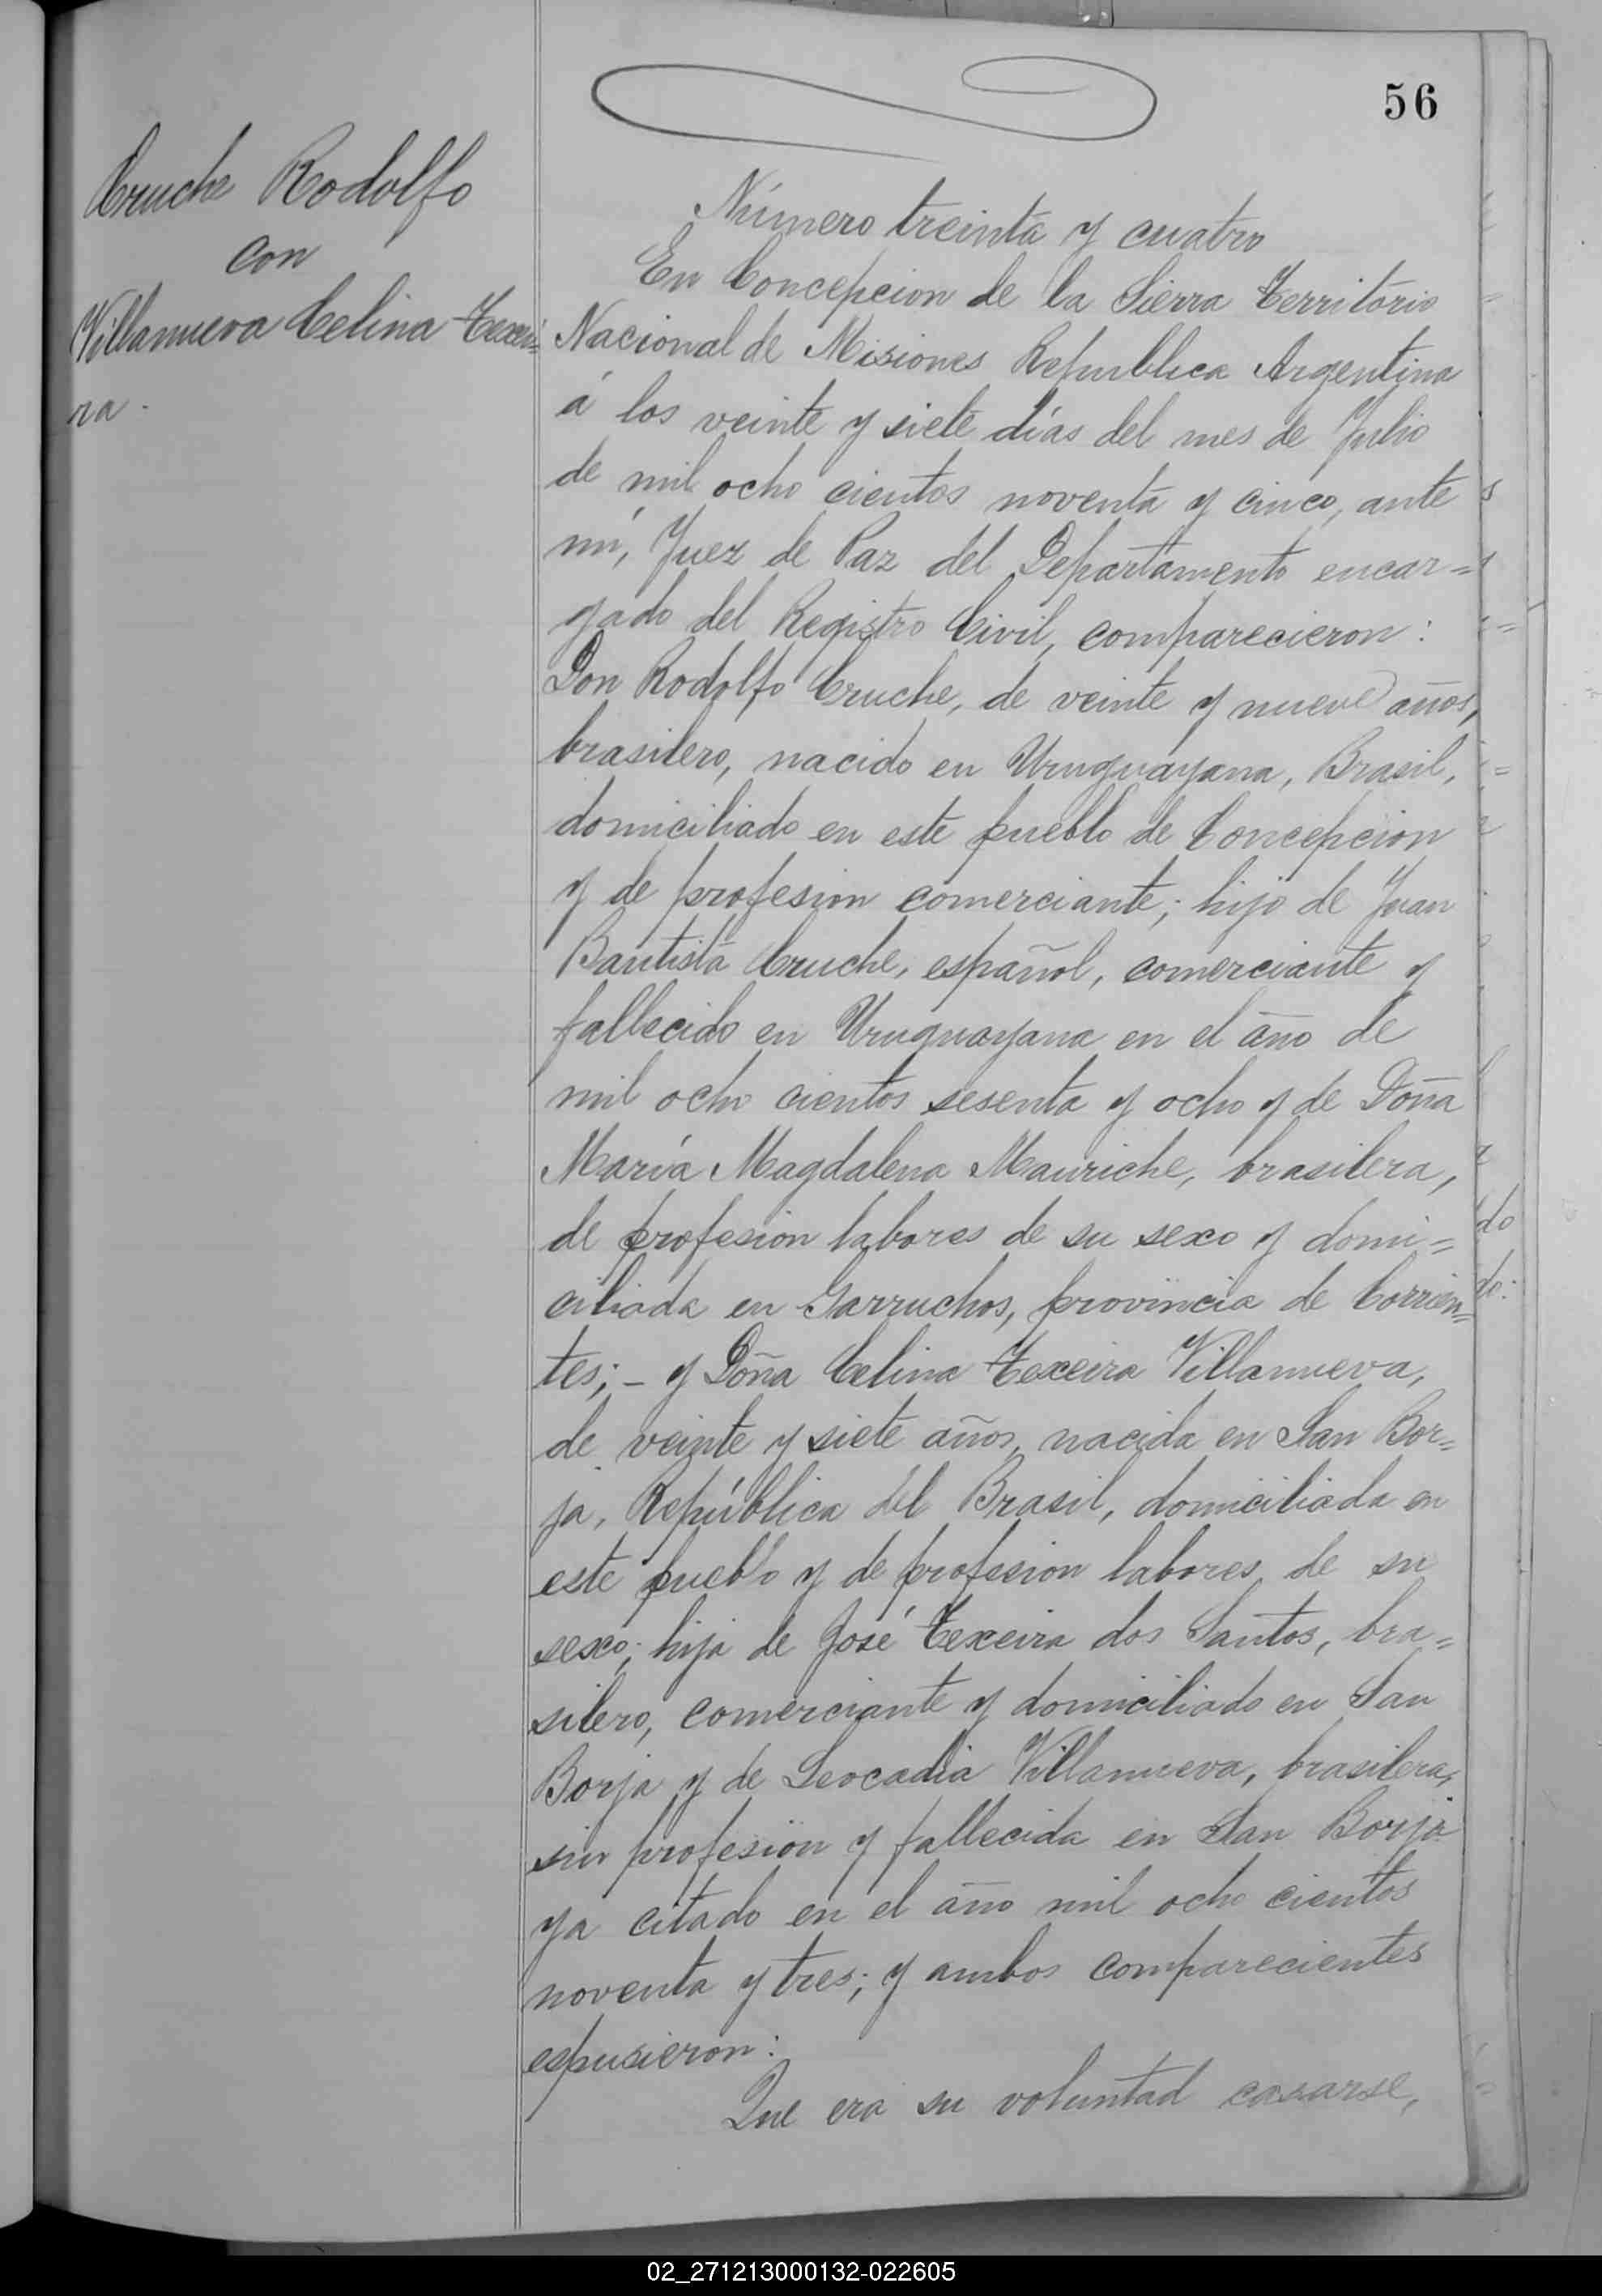 56
Cruche Rodolfo
con
Villanueva Celina Texei=
ra.
Número treinta y cuatro
En Concepcion de la Sierra Territorio
Nacional de Misiones Republica Argentina
á los veinte y siete días del mes de Julio
de mil ocho cientos noventa y cinco, ante
mí, Juez de Paz del Departamento encar=
gado del Registro Civil, comparecieron:
Don Rodolfo Cruche, de veinte y nueve años,
brasilero, nacido en Uruguayana, Brasil,
domiciliado en este pueblo de Concepcion
y de profesion comerciante; hijo de Juan
Bautista Cruche, español, comerciante y
fallecido en Uruguayana en el año de
mil ocho cientos sesenta y ocho y de Doña
María Magdalena Mauriche, brasilera,
de profesion labores de su sexo y domi=
ciliada en Garruchos, provincia de Corrien=
tes; - y Doña Celina Texeira Villanueva,
de veinte y siete años, nacida en San Bor=
ja, República del Brasil, domiciliada en
este pueblo y de profesion labores de su
sexo; hija de José Texeira dos Santos, bra=
silero, comerciante y domiciliado en San
Borja y de Leocadia Villanueva, brasilera,
sin profesion y fallecida en San Borja
ya citado en el año mil ocho cientos
noventa y tres; y ambos comparecientes
espusieron:
Que era su voluntad casarse,
do
do:
02_271213000132-022605